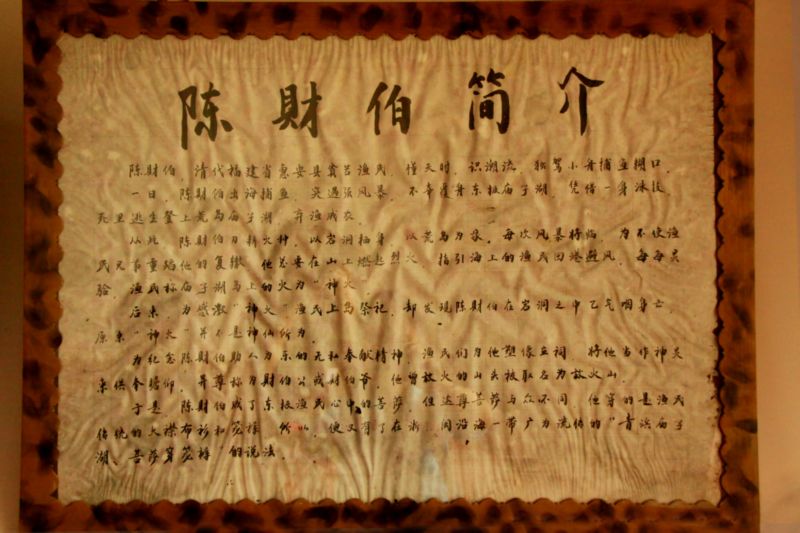 陈財伯简介
陈财伯，清代福建省惠安县渔民，懂天时，识潮流，独驾小舟捕鱼糊口。
一日，陈财伯出海捕鱼，突遇强风暴，不幸覆舟东极庙子湖，凭借一身泳技，
死里逃生登上荒岛庙子湖，弃渔成农。
从此，陈财伯刀耕火种，以岩洞栖身，以荒岛为家，每次风暴将临，为不使渔
民兄弟重蹈他的复辙，他总要在山上燃起烈火，指引海上的渔民回港避风，每每灵
验，渔民称庙子湖岛上的火为“神火”。
后来，为感激“神火”渔民上岛祭祀，却发现陈财伯在岩洞之中已气咽身亡，
原来“神火”并不是神仙所为。
为纪念陈财伯助人为乐的无私奉献精神，渔民们为他塑像立祠，将他当作神灵
来供奉瞻仰，并尊称为财伯公或财伯爷，他曾放火的山头被取名为放火山。
于是，陈财伯成了东极渔民心中的菩萨，但这尊菩萨与众不同，他穿的是渔民
传统的大襟布衫和笼裤，所以，便又有了在浙、闽沿海一带广为流传的“青浜庙子
湖、菩萨穿笼裤”的说法。